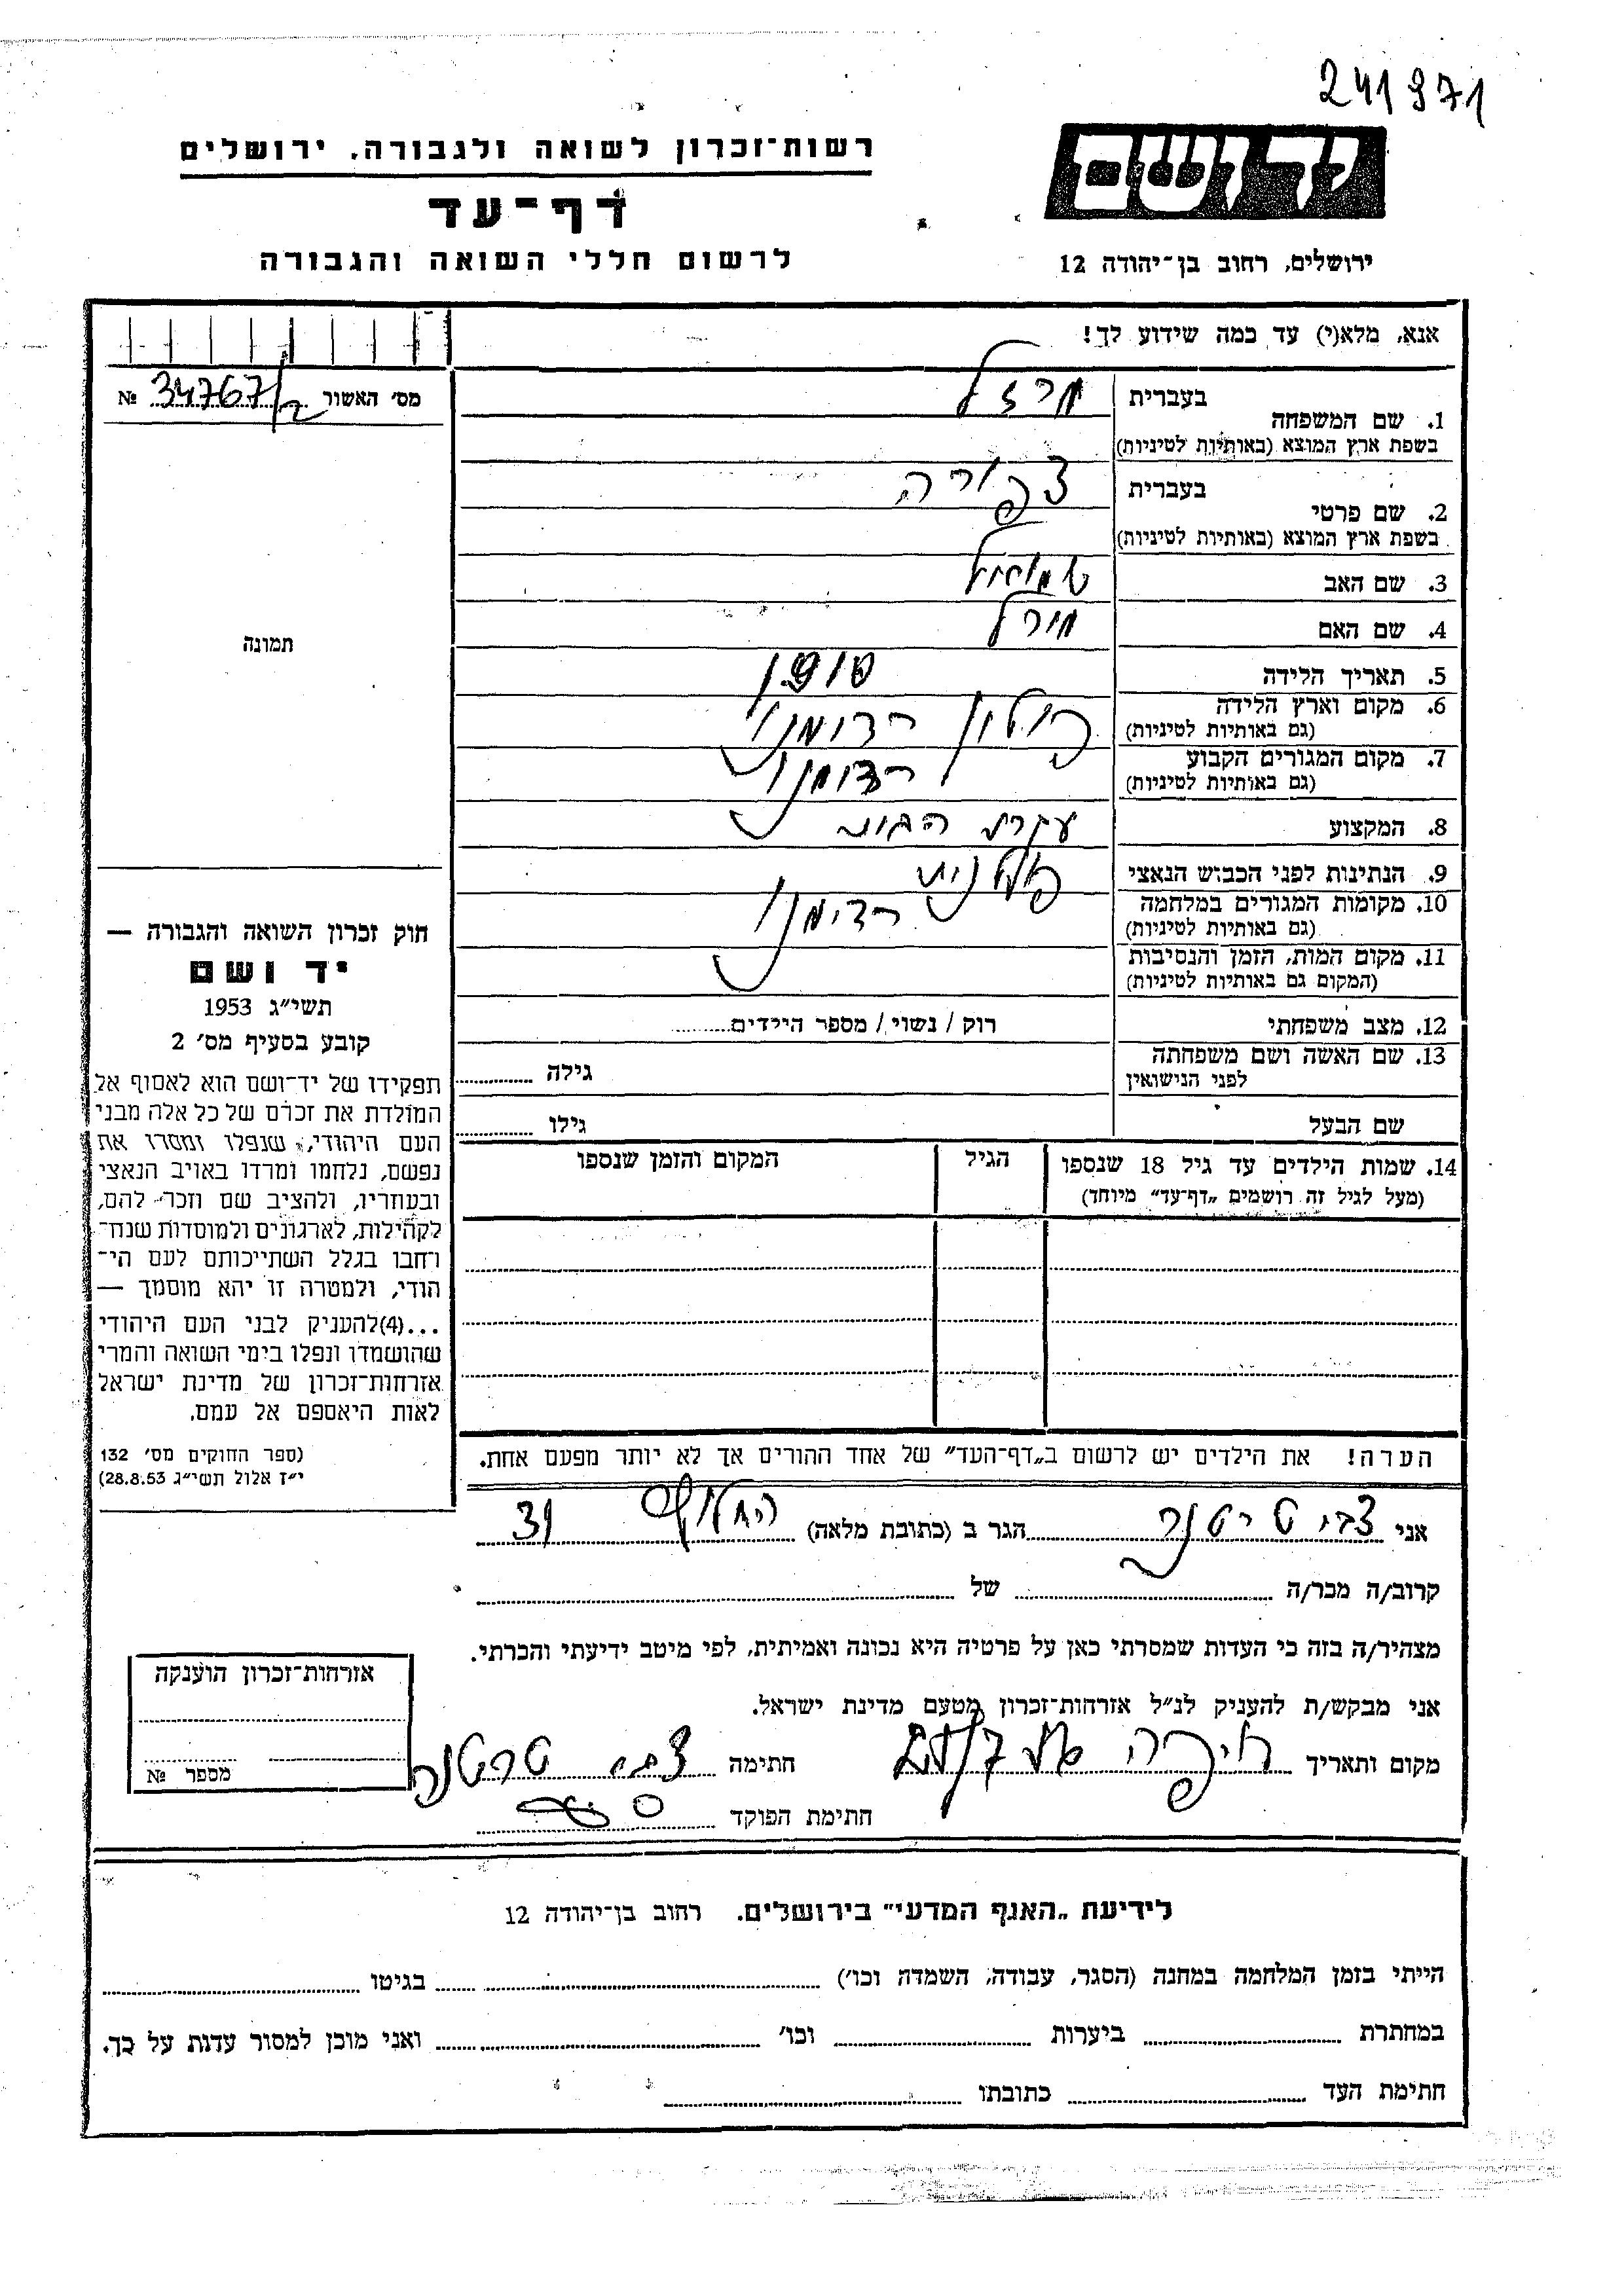 241971
רשות־זכרון לשואה ולגבורה, ירושלים
דף־עד
לרשום חללי השואה והגבורה
יד ושם
ירושלים, רחוב בן־יהודה 12
אנא, מלא(י) עד כמה שידוע לך!
מס׳ האשור 34767/2 №
תמונה
1. שם המשפחה
בעברית
בשפת ארץ המוצא (באותיות לטיניות)
2. שם פרטי
בעברית צפורה
בשפת ארץ המוצא (באותיות לטיניות)
3. שם האב שמואל
4. שם האם
5. תאריך הלידה 1910
6. מקום וארץ הלידה פולין
(גם באותיות לטיניות)
7. מקום המגורים הקבוע
(גם באותיות לטיניות)
8. המקצוע עקרת הבית
9. הנתינות לפני הכבוש הנאצי פולנית
10. מקומות המגורים במלחמה
(גם באותיות לטיניות)
11. מקום המות, הזמן והנסיבות
(המקום גם באותיות לטיניות)
12. מצב משפחתי רוק / נשוי / מספר הילדים
13. שם האשה ושם משפחתה
לפני הנישואין
גילה
שם הבעל גילו
14. שמות הילדים עד גיל 18 שנספו
(מעל לגיל זה רושמים „דף־עד” מיוחד)
הגיל
המקום והזמן שנספו
חוק זכרון השואה והגבורה —
יד ושם
תשי״ג 1953
קובע בסעיף מס׳ 2
תפקידו של יד־ושם הוא לאסוף אל
המולדת את זכרם של כל אלה מבני
העם היהודי, שנפלו ומסרו את
נפשם, נלחמו ומרדו באויב הנאצי
ובעוזריו, ולהציב שם וזכר להם,
לקהילות, לארגונים ולמוסדות שנח־
רחבו בגלל השתייכותם לעם הי־
הודי, ולמטרה זו יהא מוסמך —
...(4)להעניק לבני העם היהודי
שהושמדו ונפלו בימי השואה והמרי
אזרחות־זכרון של מדינת ישראל
לאות היאספם אל עמם.
(ספר החוקים מס׳ 132
י״ז אלול תשי״ג 28.8.53)
הערה! את הילדים יש לרשום ב„דף־העד” של אחד ההורים אך לא יותר מפעם אחת.
אני צבי הגר ב (כתובת מלאה) החלוץ 31
קרוב/ה מכר/ה של
מצהיר/ה בזה כי העדות שמסרתי כאן על פרטיה היא נכונה ואמיתית, לפי מיטב ידיעתי והכרתי.
אני מבקש/ת להעניק לנ״ל אזרחות־זכרון מטעם מדינת ישראל.
מקום ותאריך חיפה חתימה צבי
חתימת הפוקד
אזרחות־זכרון הוענקה
מספר №
לידיעת „האגף המדעי” בירושלים, רחוב בן־יהודה 12
הייתי בזמן המלחמה במחנה (הסגר, עבודה, השמדה וכו׳) בגיטו
במחתרת ביערות וכו׳ ואני מוכן למסור עדות על כך.
חתימת העד כתובתו